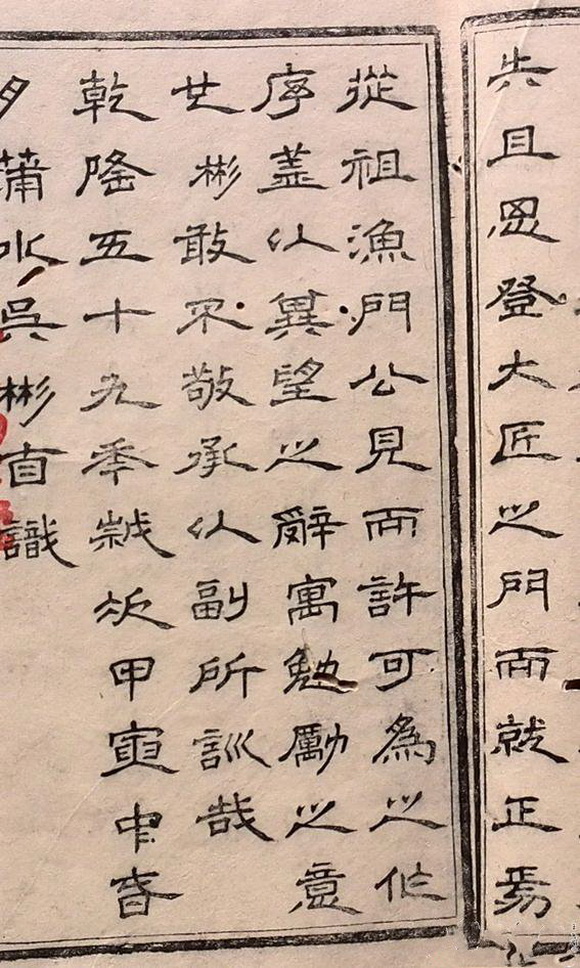 步且思登大匠之門而就正焉
從祖漁門公見而許可為之作
序蓋以異望之辭寓勉勵之意
也彬敢不敬承以副所訓哉
乾隆五十九年歲次甲寅中春
月蒲水吳彬自識